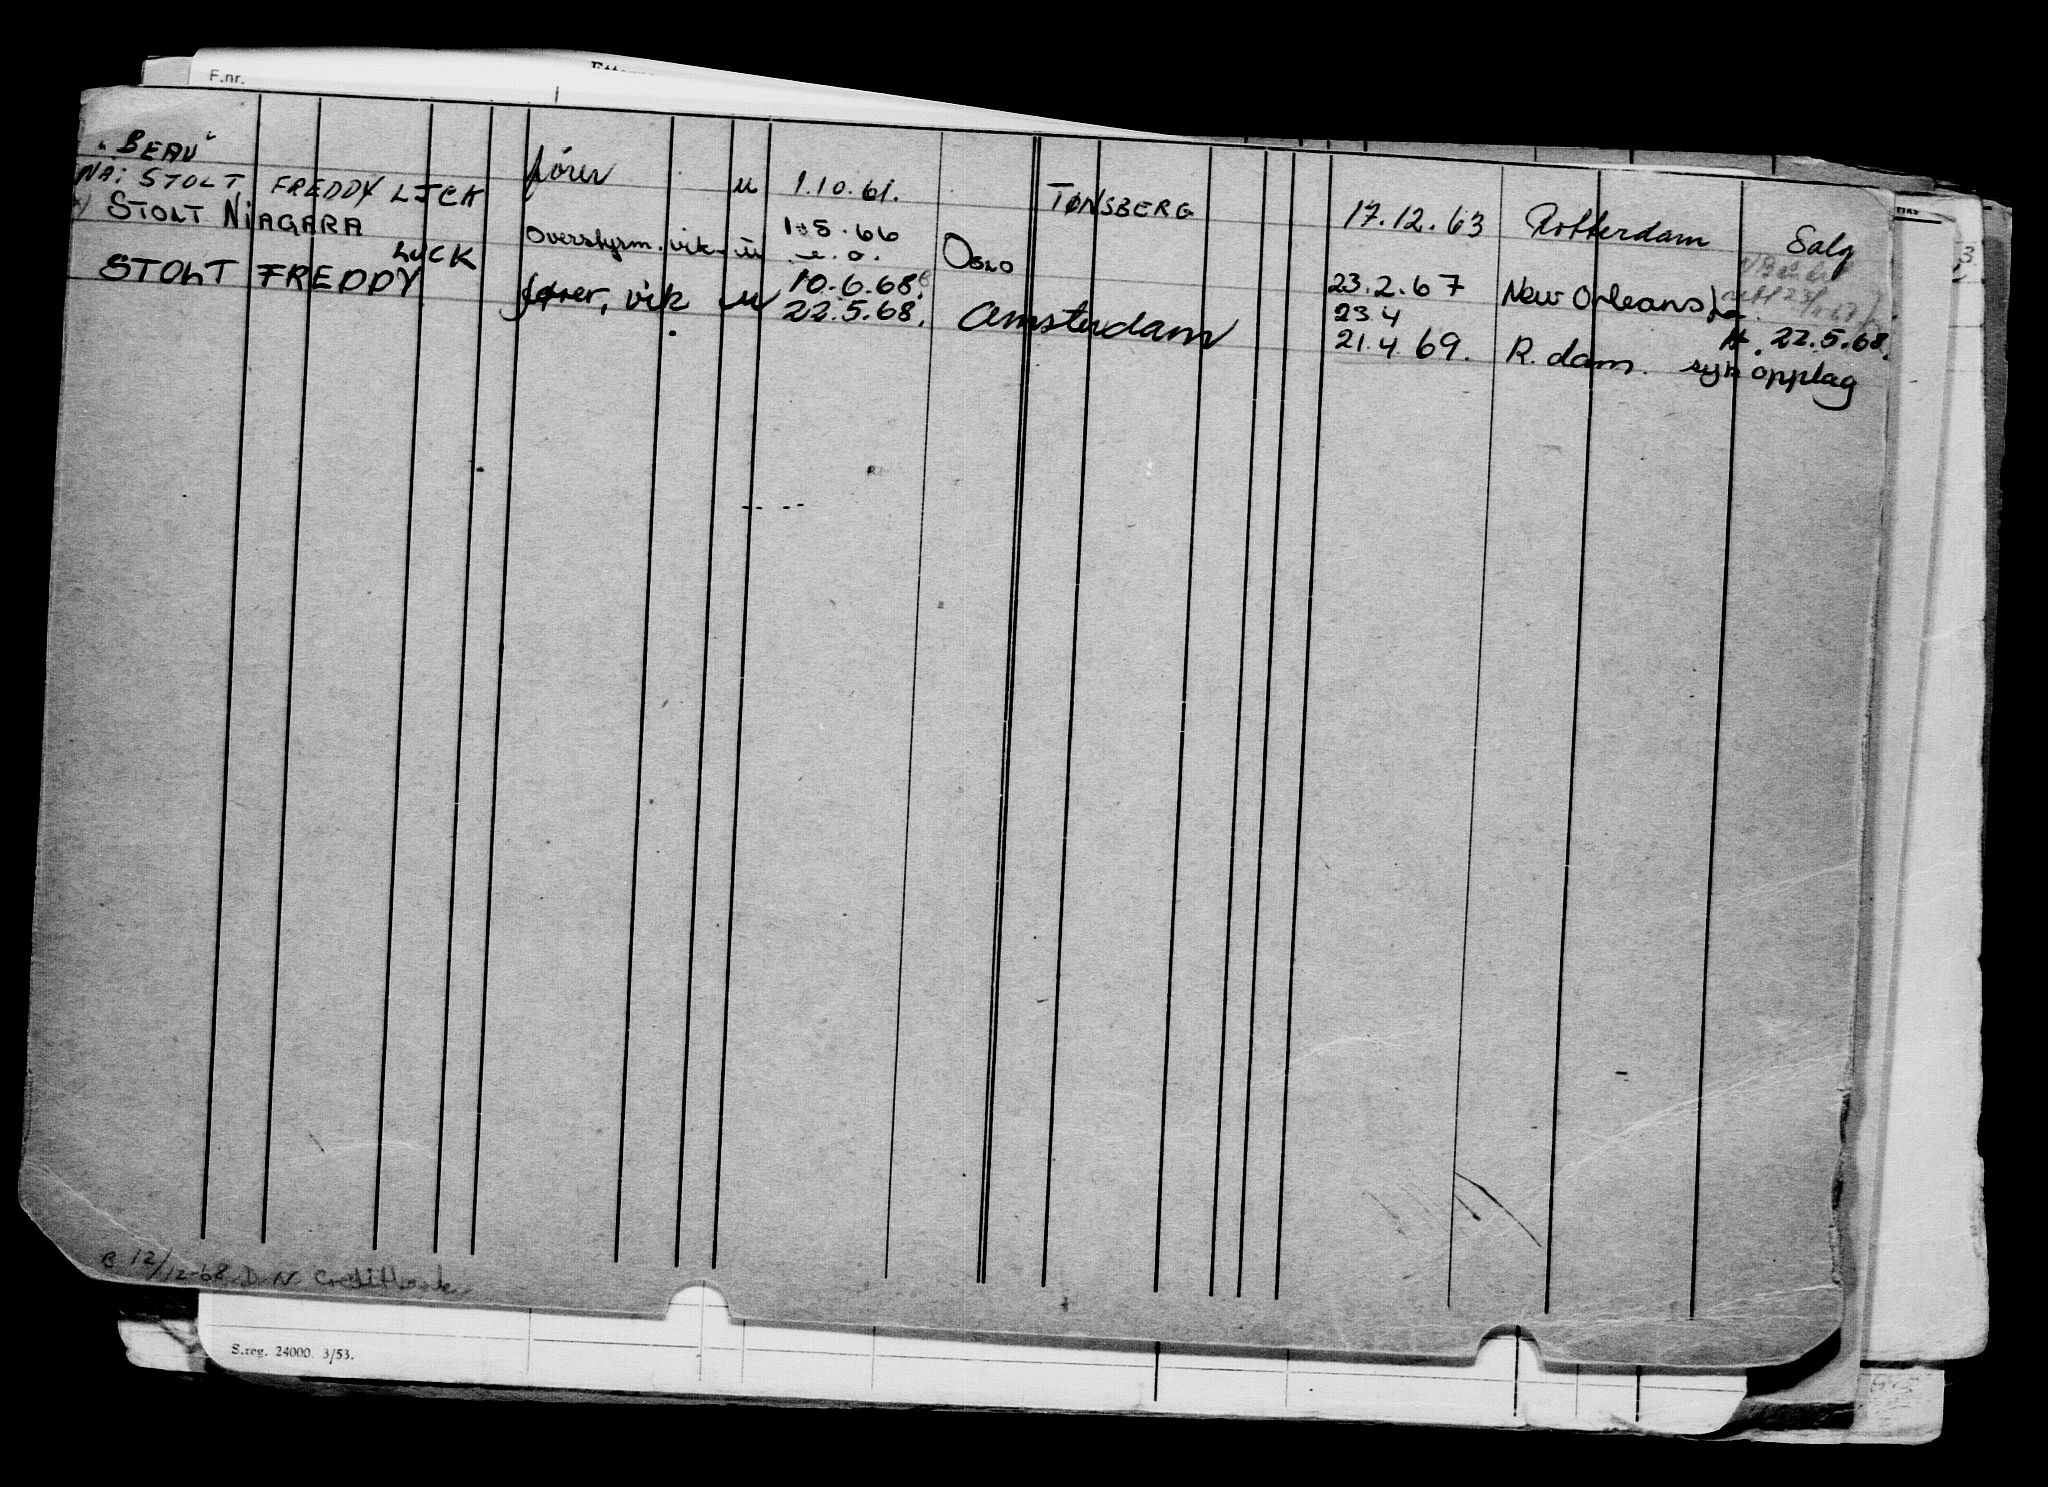 F.nr.
„BEAU" fører u 1.10.61. TØNSBERG 17.12.63 Rotterdam Salg
NÅ: STOLT FREDDY LJCK
STOLT NIAGARA Overstyrm. vik. u 1.5.66 Oslo 23.2.67 New Orleans
LUCK
STOLT FREDDY fører, vik u 10.6.68. 23.4 22.5.68.
22.5.68. Amsterdam 21.4.69. R.dam. syk opplag
B 12/12-68 D N Creditbank
S.reg. 24000. 3/53.